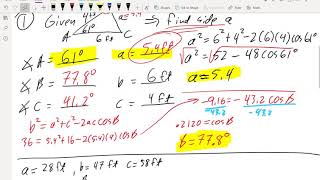 ① Given
61°
⇒ find side a
a² = 6² + 4² - 2(6)(4)cos61°
a² = 52 - 48cos61°
a = 5.4
∡A = 61° a = 5.4 ft
∡B = 77.8° b = 6 ft
∡C = 41.2° c = 4 ft
b² = a² + c² - 2ac cosB
36 = 5.4² + 16 - 2(5.4)(4)cosB
-9.16 = -43.2 cosB
-43.2 -43.2
.2120 = cosB
B = 77.8°
a = 28 ft, b = 47 ft c = 58 ft